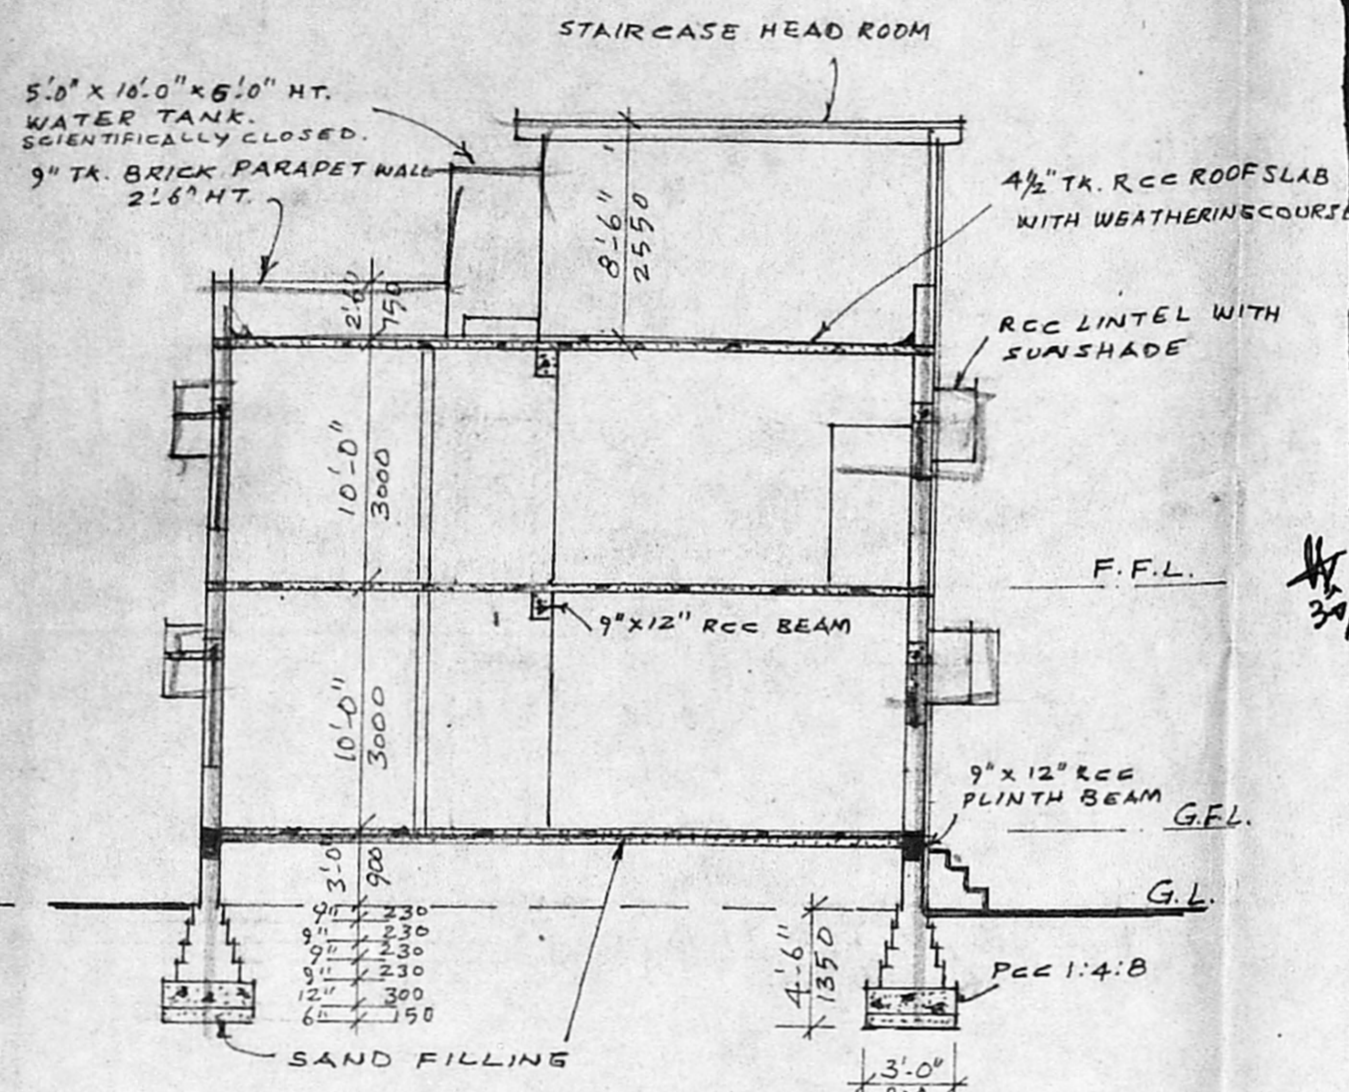 STAIRCASE HEAD ROOM
5'.0" X 10'.0" X 6'.0" HT.
WATER TANK.
SCIENTIFICALLY CLOSED.
9" TK. BRICK PARAPET WALL
2'.6" HT.
4½" TK. RCC ROOF SLAB
WITH WEATHERING COURSE
8'-6"
2550
2'.6"
750
RCC LINTEL WITH
SUNSHADE
10'-0"
3000
F.F.L.
9"X12" RCC BEAM
10'-0"
3000
9" X 12" RCC
PLINTH BEAM
G.F.L.
3'-0"
900
G.L.
9" 230
9" 230
9" 230
9" 230
12" 300
6" 150
4'-6"
1350
PCC 1:4:8
SAND FILLING
3'-0"